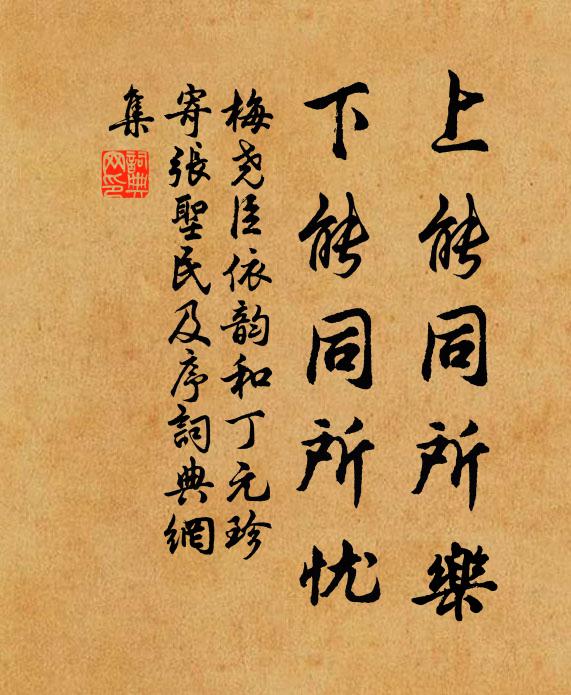 上能同所樂
下能同所忧
梅尧臣依韵和丁元珍
寄張聖民及序詞典網
集
詞典
网印